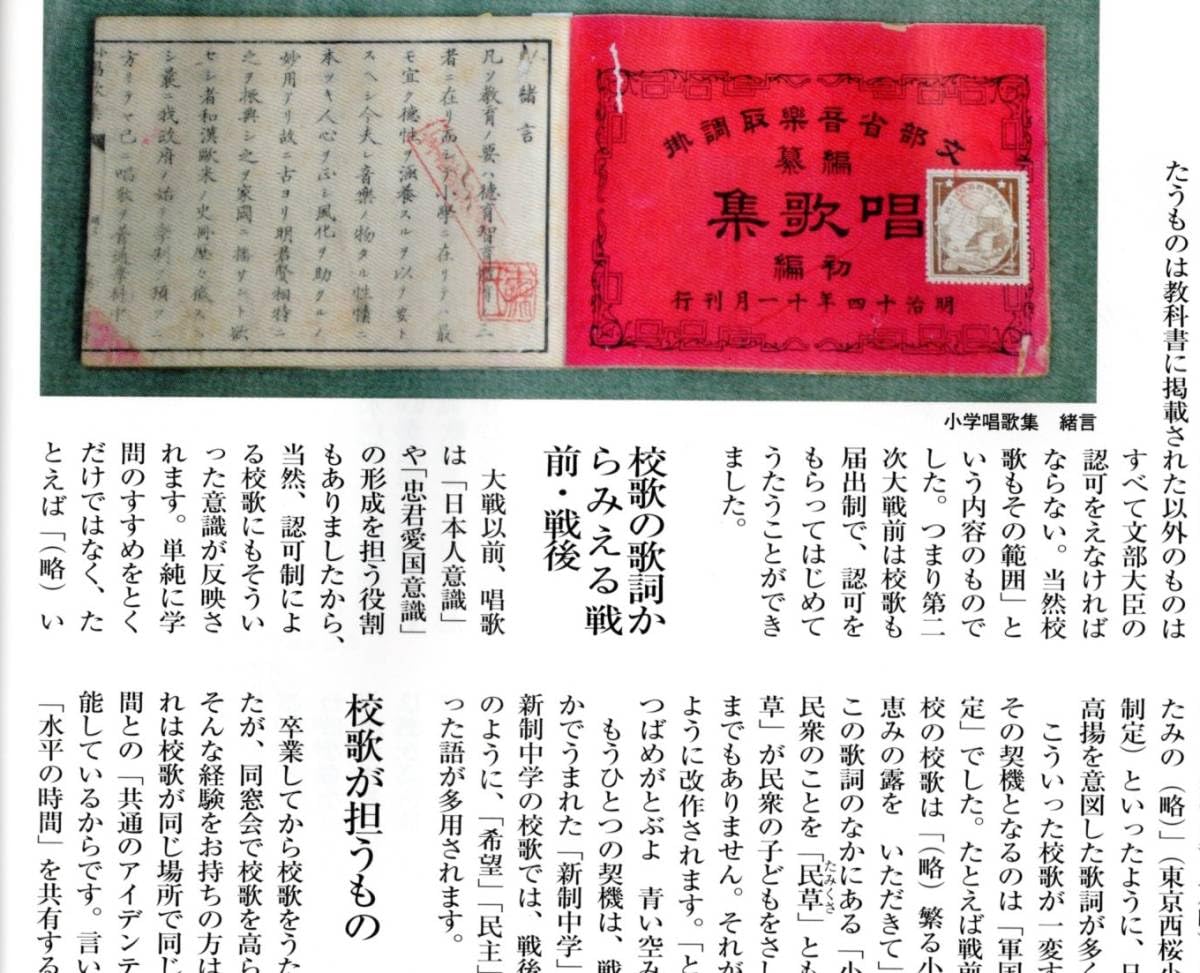 文部省音樂取調掛
編纂
唱歌集
初編
明治十四年十一月刊行
緒言
凡ソ教育ノ要ハ徳育智育體育ノ三
者ニ在リ而シテ小學ニ在リテハ最
モ宜ク徳性ヲ涵養スルヲ以テ要ト
スヘシ今夫レ音樂ノ物タル性情ニ
本ツキ人心ヲ正シ風化ヲ助クルノ
妙用アリ故ニ古ヨリ明君賢相特ニ
之ヲ振興シ之ヲ家國ニ播サント欲
セシ者和漢歐米ノ史冊歴々徴スヘ
シ曩ニ我政府ノ始テ學制ヲ頒ツニ
方リテヤ已ニ唱歌ヲ普通學科中
小学唱歌集 緒言
たうものは教科書に掲載された以外のものは
すべて文部大臣の
認可をえなければ
ならない。当然校
歌もその範囲」と
いう内容のもので
した。つまり第二
次大戦前は校歌も
届出制で、認可を
もらってはじめて
うたうことができ
ました。
校歌の歌詞か
らみえる戦
前・戦後
大戦以前、唱歌
は「日本人意識」
や「忠君愛国意識」
の形成を担う役割
もありましたから、
当然、認可制によ
る校歌にもそうい
った意識が反映さ
れます。単純に学
問のすすめをとく
だけではなく、た
とえば「（略）い
たみの（略）」（東京西桜小
制定）といったように、日
高揚を意図した歌詞が多く
こういった校歌が一変す
その契機となるのは「軍国
定」でした。たとえば戦前
校の校歌は「（略）繁る小
恵みの露を いただきて」
この歌詞のなかにある「小
民衆のことを「民草」とも
たみくさ
草」が民衆の子どもをさし
までもありません。それが
ように改作されます。「と
つばめがとぶよ 青い空み
もうひとつの契機は、戦
かでうまれた「新制中学」
新制中学の校歌では、戦後
のように、「希望」「民主」
った語が多用されます。
校歌が担うもの
卒業してから校歌をうた
たが、同窓会で校歌を高ら
そんな経験をお持ちの方は
れは校歌が同じ場所で同じ
間との「共通のアイデンテ
能しているからです。言い
「水平の時間」を共有する